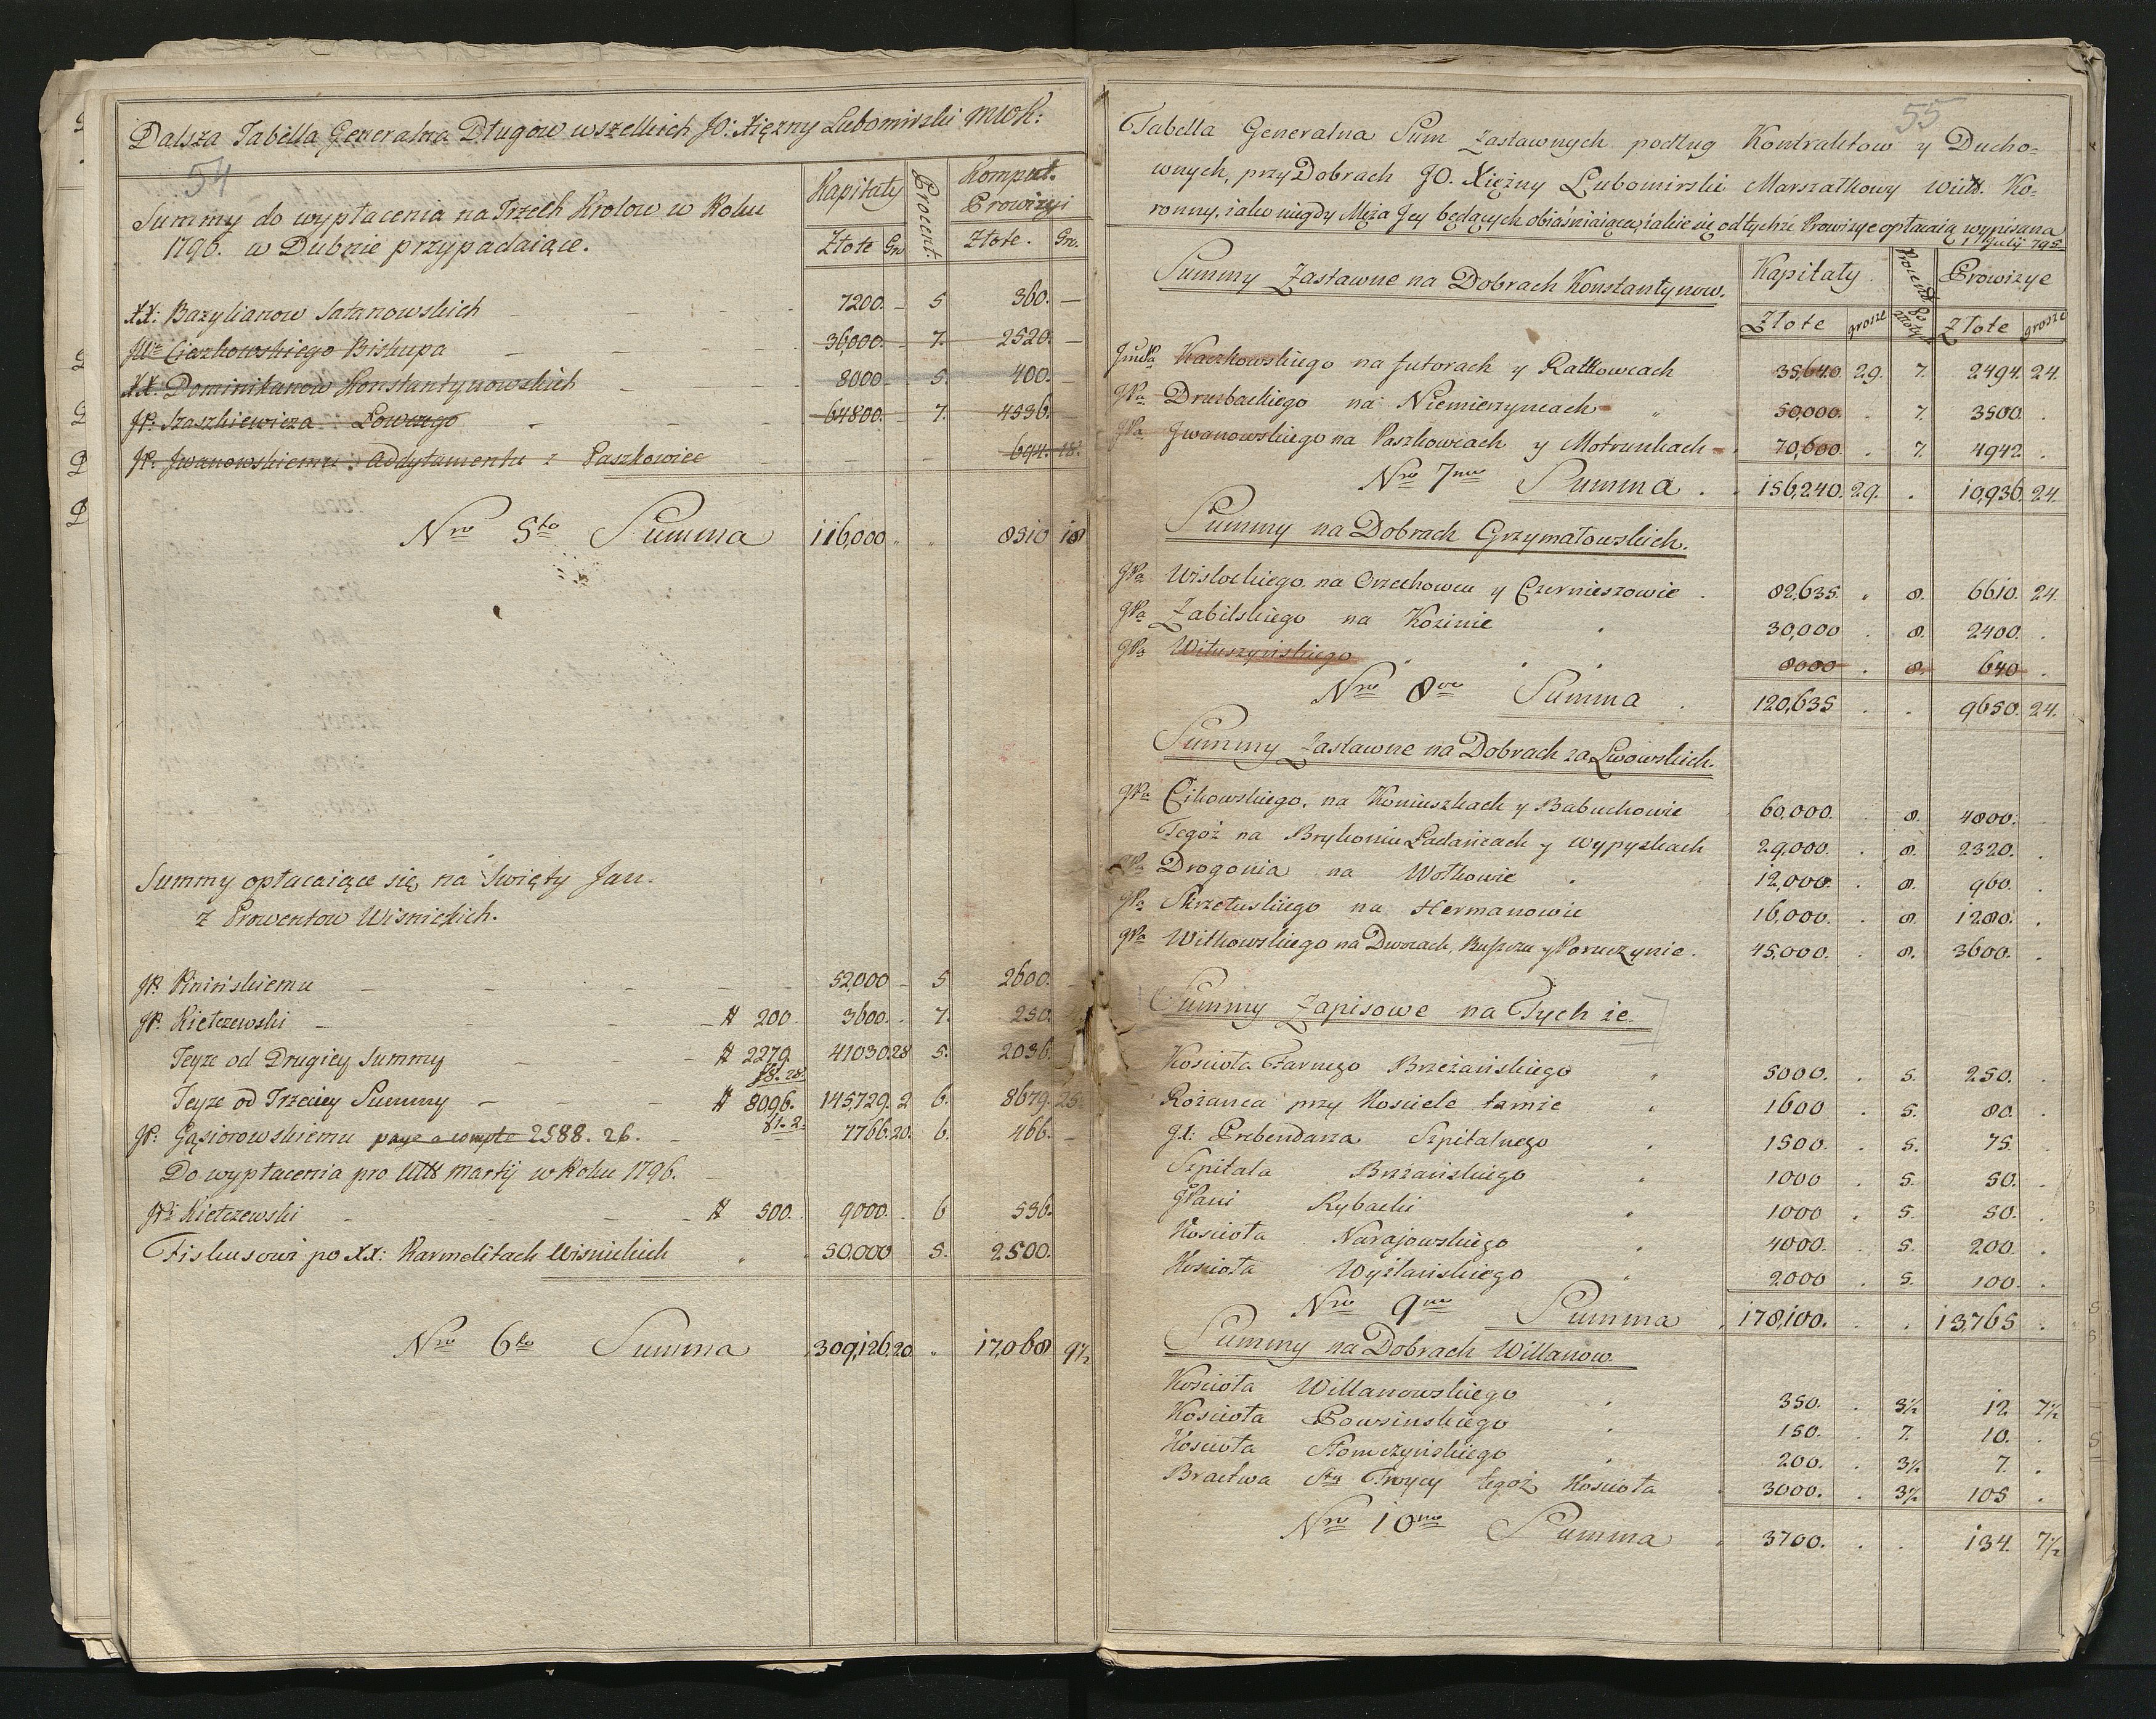 Dalsza Tabella Generalna Długow wszelkich JO: Xięzny Lubomirski MWK:
54
Summy do wypłacenia na Trzech Krolow w Roku
1796. w Dubnie przypadaiące.
Kapitały Procent. Komput. Prowizyi
Złote Gr Złote. Gr.
XX: Bazylianow Satanowskich 7200. 5 360.
Cieszkowskiego Biskupa 36,000. 7. 2520.
XX Dominikanow Konstantynowskich 8000 5. 400.
JP. Szaszkiewicza Łowczego 64800. 7. 4536.
JP. Jwanowskiemu Addytamentu z Paszkowiec 694. 18.
Nro 5to Summa 116,000 8510 18
Summy opłacaiące się na Swięty Jan.
z Prowentow Wisnickich.
JP. Pinińskiemu 52,000 5 2600.
JP. Kietczewski # 200 3600. 7. 250.
Teyze od Drugiey Summy # 2279. 41030. 28 5. 2036.
f 8. 28.
Teyze od Trzeciey Summy # 8096. 145,729. 2 6. 8679. 25
f 1. 2.
JP: Gąsiorowskiemu paye a compte 2588. 26. 7766. 20. 6. 466.
Do wypłacenia pro Ulta Martij w Roku 1796.
JP: Kietczewski # 500. 9000. 6 536.
Fiskusowi po XX: Karmelitach Wisnickich 50,000 5. 2500.
Nro 6to Summa 309,126. 20 17,068 9½
55
Tabella Generalna Sum Zastawnych podług Kontraktow y Ducho=
wnych, przy Dobrach JO. Xięzny Lubomirski Marszałkowy Wilk. Ko=
ronny, iako niegdy Męża Jey będących obiaśniaiąca, iakie się od tychże Prowizye opłacaią wypisana
1 July 795
Summy Zastawne na Dobrach Konstantynow.
Kapitały Procent Prowizye
Złote grosze Złote grosze
Kaczkowskiego na futorach y Ratkowcach 35,640 29. 7. 2494. 24.
JPa Druzbackiego na Niemierzyncach 50,000. 7. 3500.
JPa Jwanowskiego na Paszkowcach y Motrunkach 70,600. 7. 4942.
Nro 7mo Summa 156,240. 29. 10,936. 24.
Summy na Dobrach Grzymałowskich.
JPa Wisłockiego na Orzechowcu y Czernieszowie 82,635. 8. 6610. 24.
JPa Zabilskiego na Kozinie 30,000 8. 2400.
JPa Wituszyńskiego 8000 8. 640
Nro 8vo Summa 120,635 9650. 24.
Summy Zastawne na Dobrach za Lwowskich.
JPa Cikowskiego, na Koniuszkach y Babuchowie 60,000. 8. 4800.
Tegoż na Brykoniu Ładańcach y Wypyskach 29,000. 8. 2320.
JPa Drogonia na Wołkowie 12,000. 8. 960.
JPa Skrzetuskiego na Hermanowie 16,000. 8. 1280.
JPa Witkowskiego na Dworcach, y Poruczynie. 45,000. 8. 3600.
Summy Zapisowe na Tych ie.
Kosciota Farnego Brzeżańskiego 5000. 5. 250.
Rożanca przy Kosciele tamże 1600 5. 80.
JX: Prebendarza Szpitalnego 1500. 5. 75.
Szpitala Brzeżańskiego 1000 5. 50.
JPani Rybacki 1000 5. 50.
Kosciota Narajowskiego 4000. 5. 200.
Kosciota Wyżłańskiego 2000 5. 100.
Nro 9no Summa 178,100. 13,765
Summy na Dobrach Willanow.
Kosciota Willanowskiego 350. 3½ 12 7½
Kosciota Powsinskiego 150. 7. 10.
Kosciota Słomczyńskiego 200. 3½ 7.
Bractwa Sty Troycy tegoż Kosciota 3000. 3½ 105
Nro 10mo Summa 3700. 134. 7½